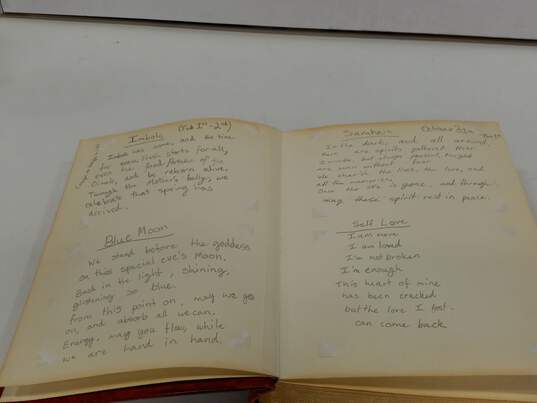 Imbolc (Feb 1st - 2nd)
Imbolc has come, and the time
for new lives starts for all,
even the God
and be reborn alive.
Through the Mother's belly, we
celebrate that spring has
arrived.
Blue Moon
We stand before the goddess
on this special eve's Moon.
Bask in the light, shining,
glistening so blue.
From this point on, may we go
on, and absorb all we can.
Energy, may you flow, while
we are hand in hand.
Samhain October 31st
In the dark, and all around
there are spirits gathered here
but always present, tonight
are seen without fear.
We cherish the lives, the love, and
all the memories.
Once the is gone, and through
may these spirit rest in peace.
Self Love
I am
I am loved
I'm not broken
I'm enough
This heart of mine
has been cracked
but the love I lost
can come back